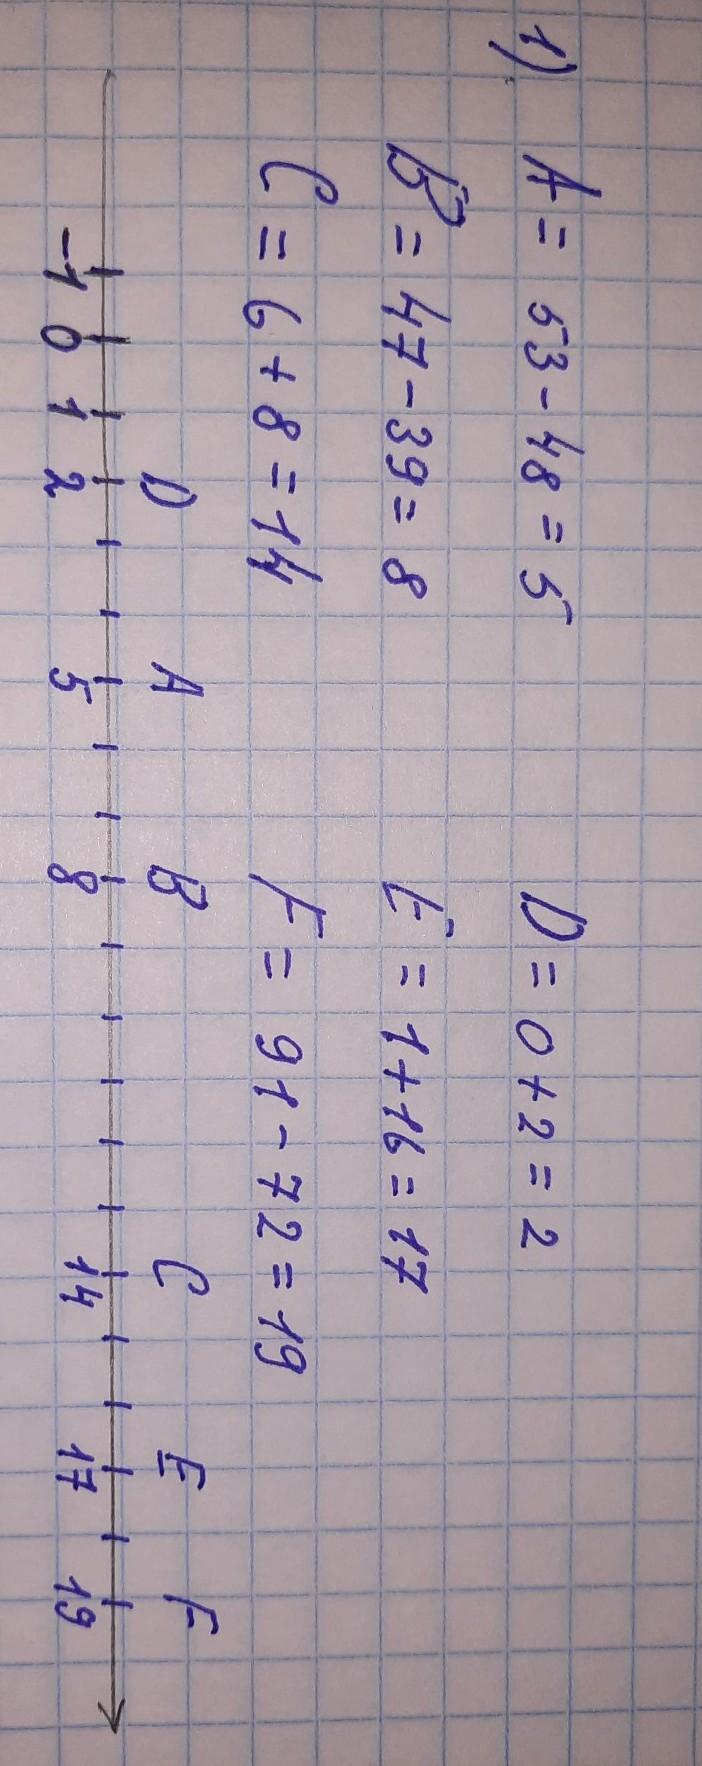 1) A = 53 - 48 = 5 D = 0 + 2 = 2
B = 47 - 39 = 8 E = 1 + 16 = 17
C = 6 + 8 = 14 F = 91 - 72 = 19
D A B C E F
-1 0 1 2 5 8 14 17 19